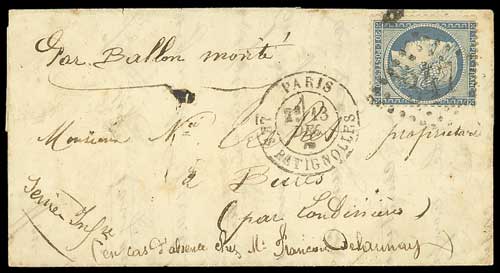 Par Ballon monté
PARIS
13
DEC.
BATIGNOLLES
Monsieur propriétaire
à Bures
(par Londinières)
Seine Infre
(en cas d'absence chez Mr François Delaunay)